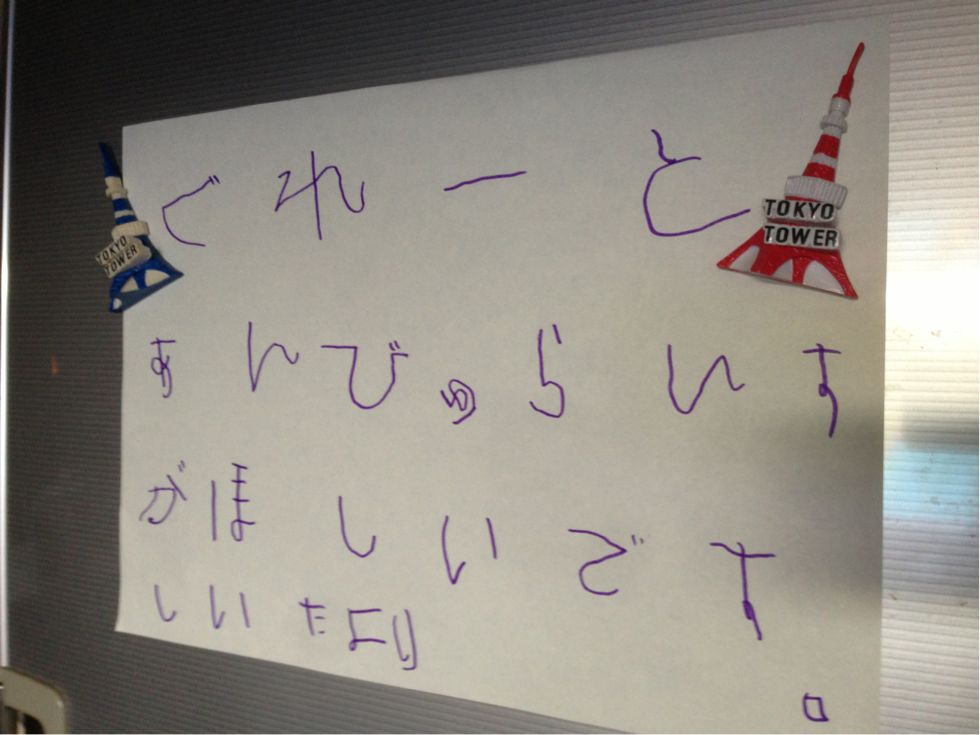 ぐれーと
あんびゅらんす
がほしいです
しいたより
。
TOKYO
TOWER
TOKYO
TOWER